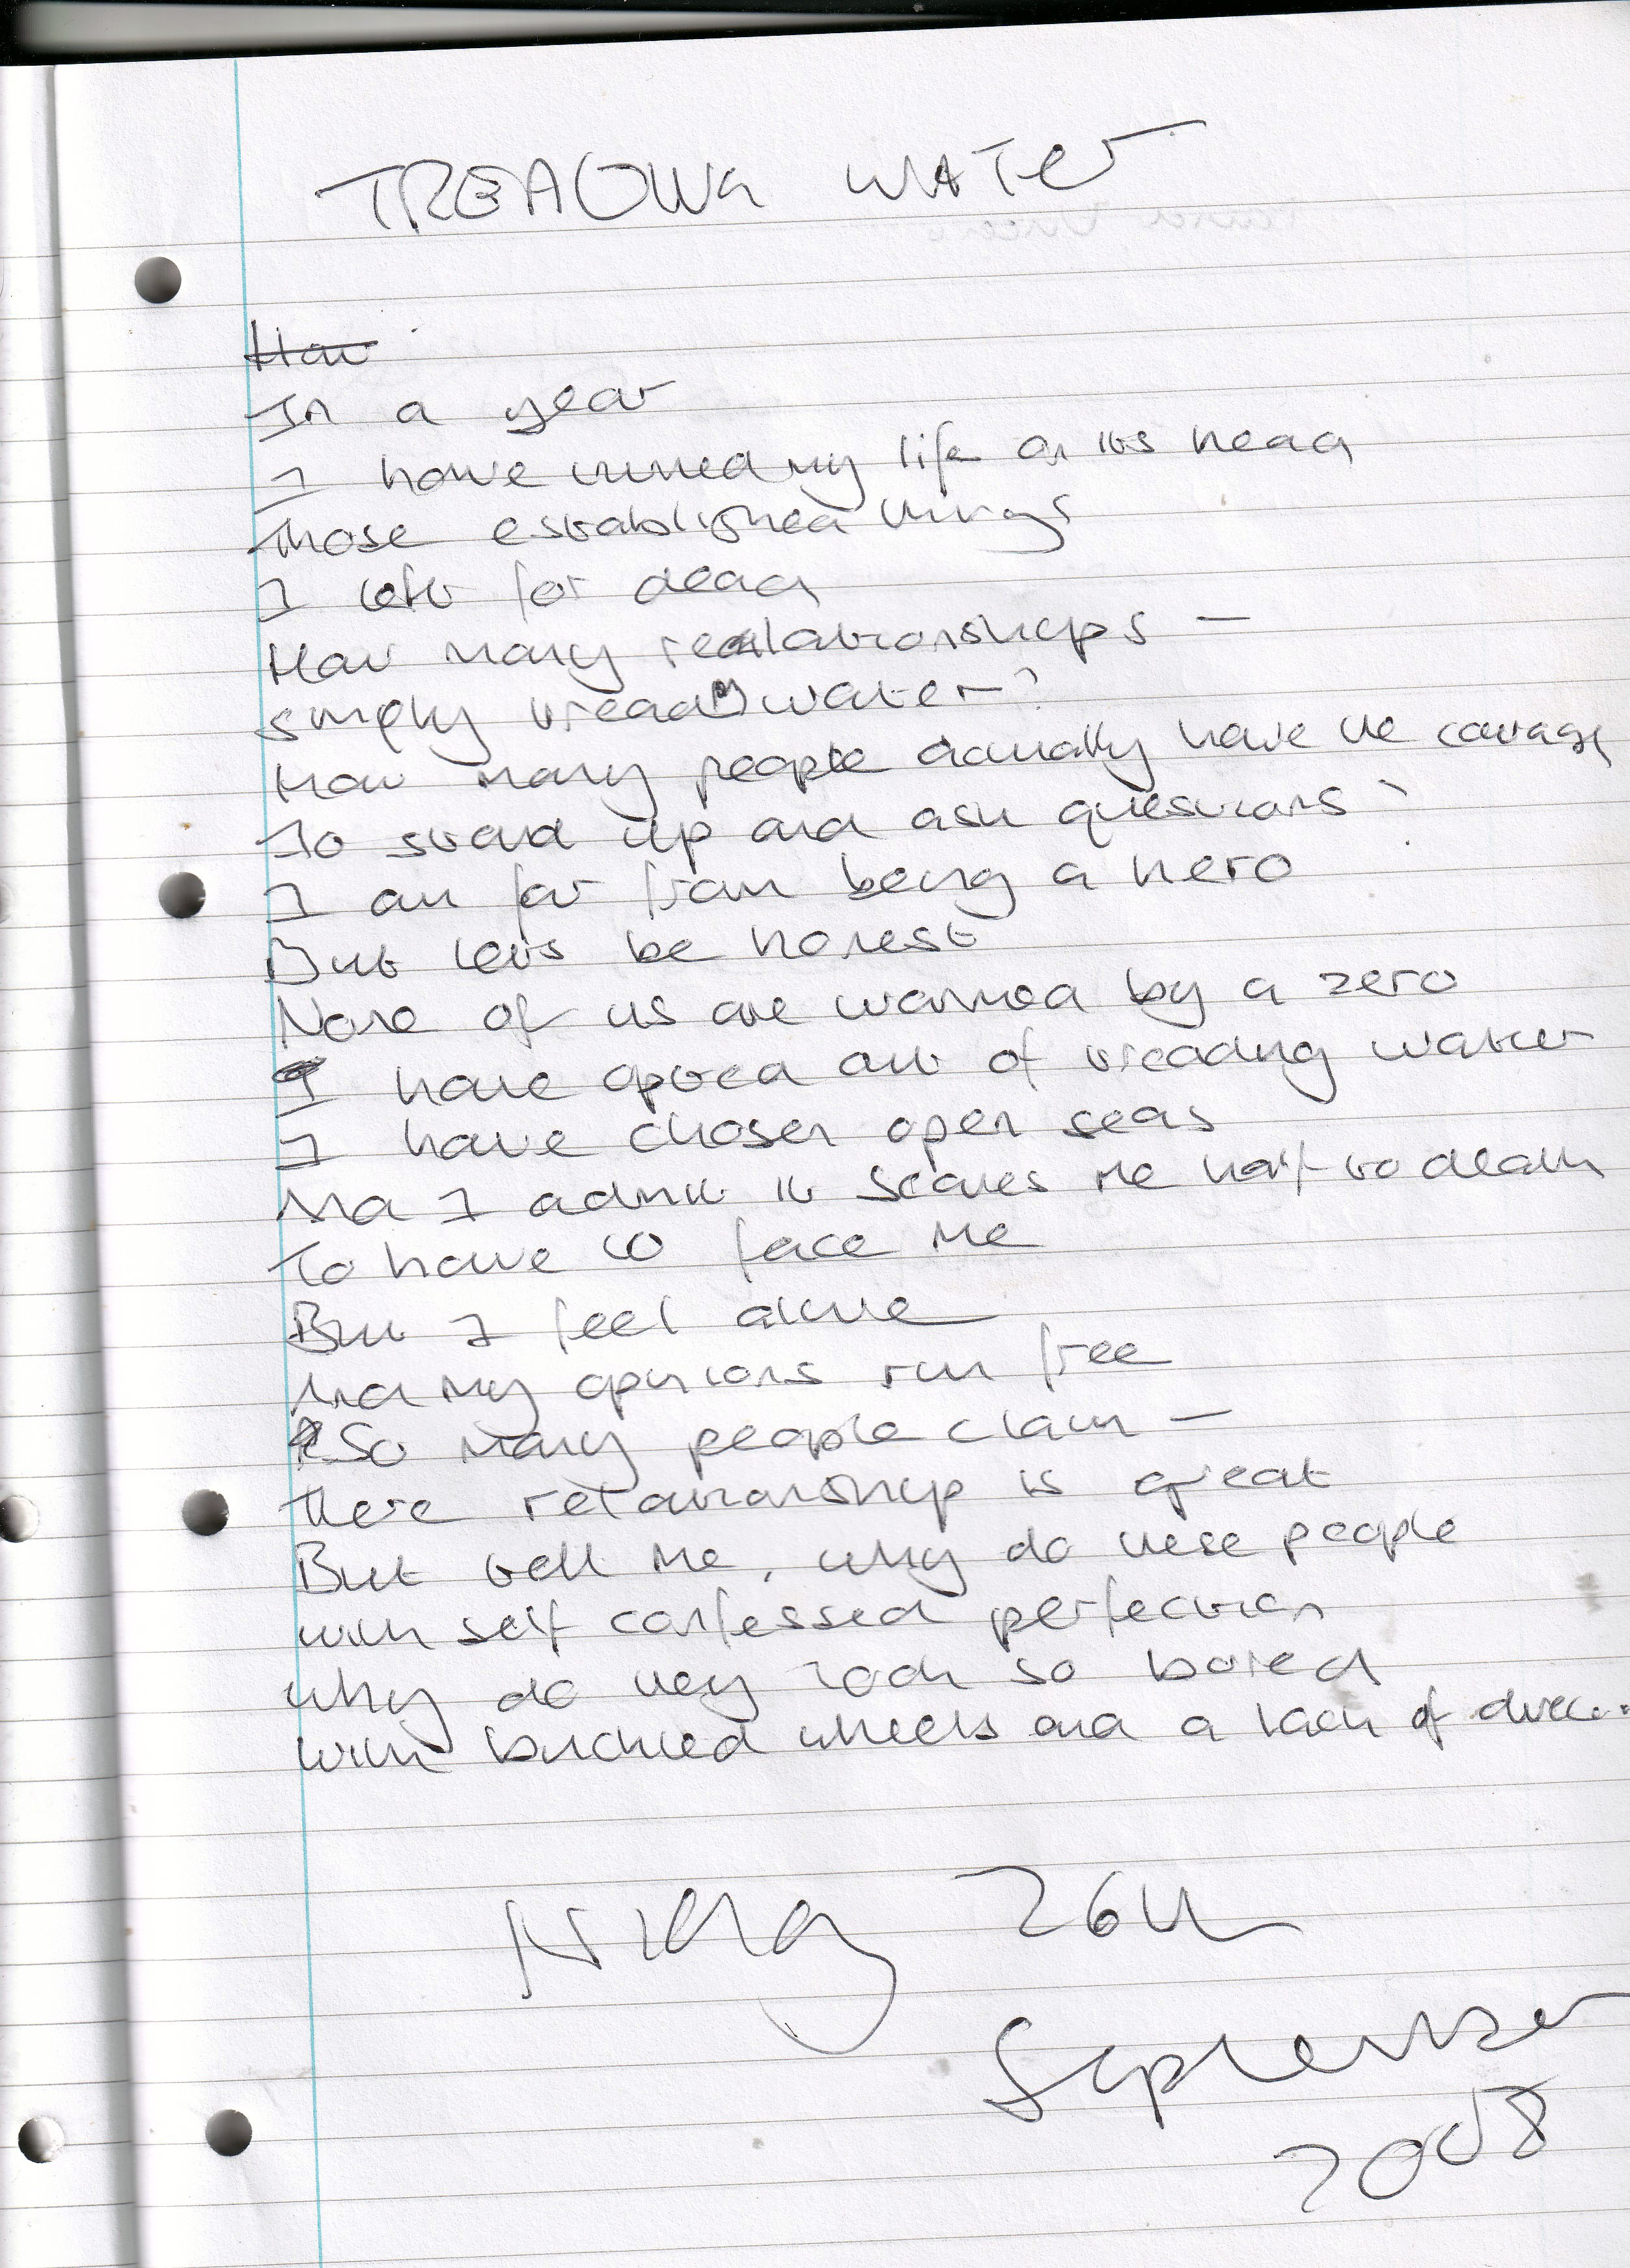 TREADING WATER
How
In a year
I have turned my life on its head
Those established things
I left for dead
How many relationships –
simply tread water?
How many people actually have the courage
To stand up and ask questions?
I am far from being a hero
But lets be honest
None of us are warmed by a zero
I have opted out of treading water
I have chosen open seas
And I admit it scares me half to death
To have to face me
But I feel alive
And my opinions run free
So many people claim –
There relationship is great
But tell me, why do these people
with self confessed perfection
why do they look so bored
with buckled wheels and a lack of direc...
Nicky 26th
September
2008